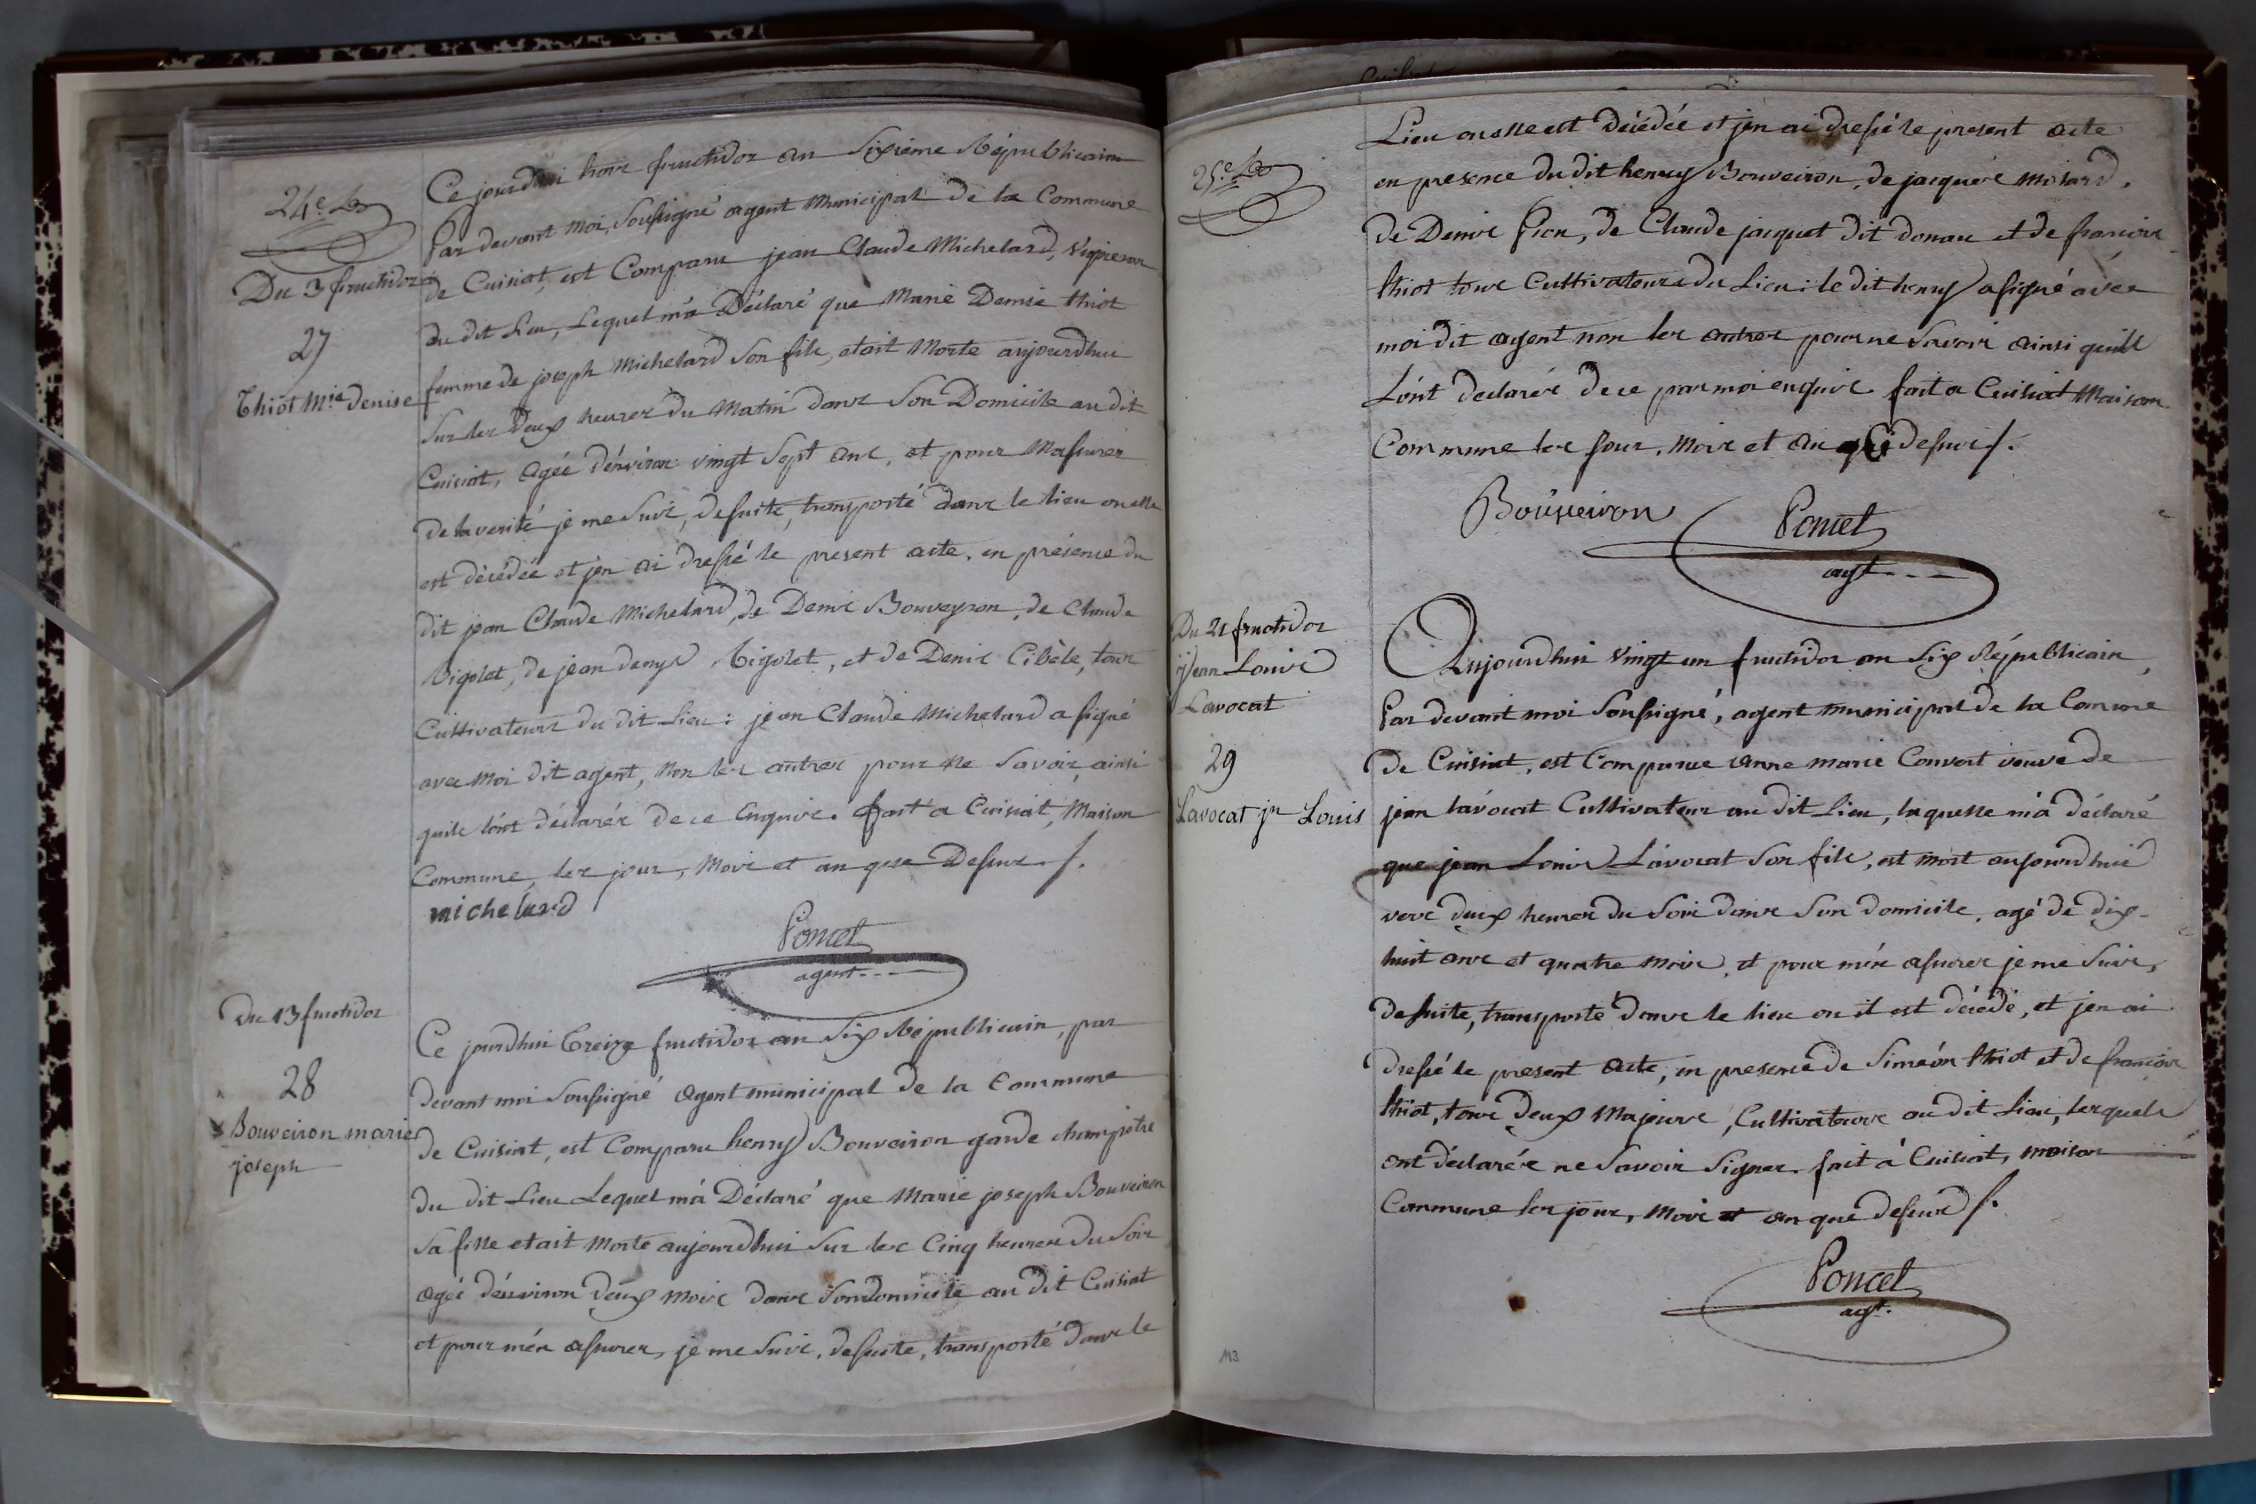 24e
Du 3 fructidor
27
Thiot Mie denise
Ce jourdhui trois fructidor an Sixieme Républicain
Par devant moi, Soussigné agent Municipal de la Commune
de Cuisiat, est Comparu jean Claude Michelard, Vigneron
du dit Lieu, Lequel m'a Déclaré que Marie Denise thiot
femme de joseph Michelard Son fils, etait Morte aujourdhui
Sur les deux heures du Matin dans Son Domicile au dit
Cuisiat, agée d'environ vingt Sept ans, et pour M'assurer
de la verité je me Suis, de suite, transporté dans le lieu ou elle
est décédée et j'en ai dressé le present acte. en présence du
dit jean Claude Michelard, de Denis Bouveyron, de Claude
Bigolet, de jean denys Bigolet, et de Denis Cibèle, tous
Cultivateurs du dit Lieu : jean Claude Michelard a signé
avec Moi dit agent, Non les autres pour ne Savoir, ainsi
quils l'ont déclarés de ce Enquis. fait a Cuisiat, Maison
Commune, les jour, Mois et an que Dessus ./.
michelard
Poncet
agent
Du 13 fructidor
28
Bouveiron marie
joseph
Ce jourdhui treize fructidor an Six Républicain, par
devant moi Soussigné agent municipal de la Commune
de Cuisiat, est Comparu henry Bouveiron garde champètre
du dit Lieu Lequel m'a Déclaré que Marie joseph Bouveiron
Sa fille etait Morte aujourdhui Sur les Cinq heures du Soir
agée d'environ deux mois dans Son domicile au dit Cuisiat
et pour m'en assurer, je me Suis, de suite, transporté dans le
25e
Lieu ou elle est décédée et j'en ai dressé le present acte
en presence du dit henry Bouveiron, de jacques
de Denis Pion, de Claude jacquet dit donau et de francois
thiot tous Cultivateurs du Lieu : le dit henry a signé avec
moi dit agent non les autres pour ne Savoir ainsi quils
L'ont declarés de ce par moi enquis fait a Cuisiat Maison
Commune les jour, Mois et an que dessus ./.
Bouveiron
Poncet
agt
Du 21 fructidor
jean Louis
Lavocat
29
Lavocat jn Louis
Aujourdhui Vingt un fructidor an Six Républicain,
Par devant moi Soussigné, agent municipal de la Comune
de Cuisiat, est Comparue anne marie Convert veuve de
jean lavocat Cultivateur au dit Lieu, laquelle m'a déclaré
que jean Louis Lavocat Son fils, est mort aujourdhui
vers deux heures du Soir dans Son domicile, agé de dix-
huit ans et quatre mois, et pour m'en assurer je me Suis,
de suite, transporté dans le lieu ou il est décédé, et j'en ai
dressé le present acte, en presence de Siméon thiot et de francois
thiot, tous deux Majeurs, Cultivateurs au dit Lieu, lesquels
ont déclarés ne Savoir Signer. fait à Cuisiat, maison
Commune les jour, Mois et an que dessus ./.
Poncet
agt.
113